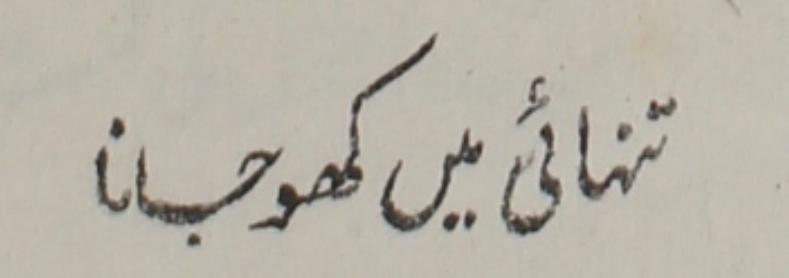 تنہائی میں کھو جانا